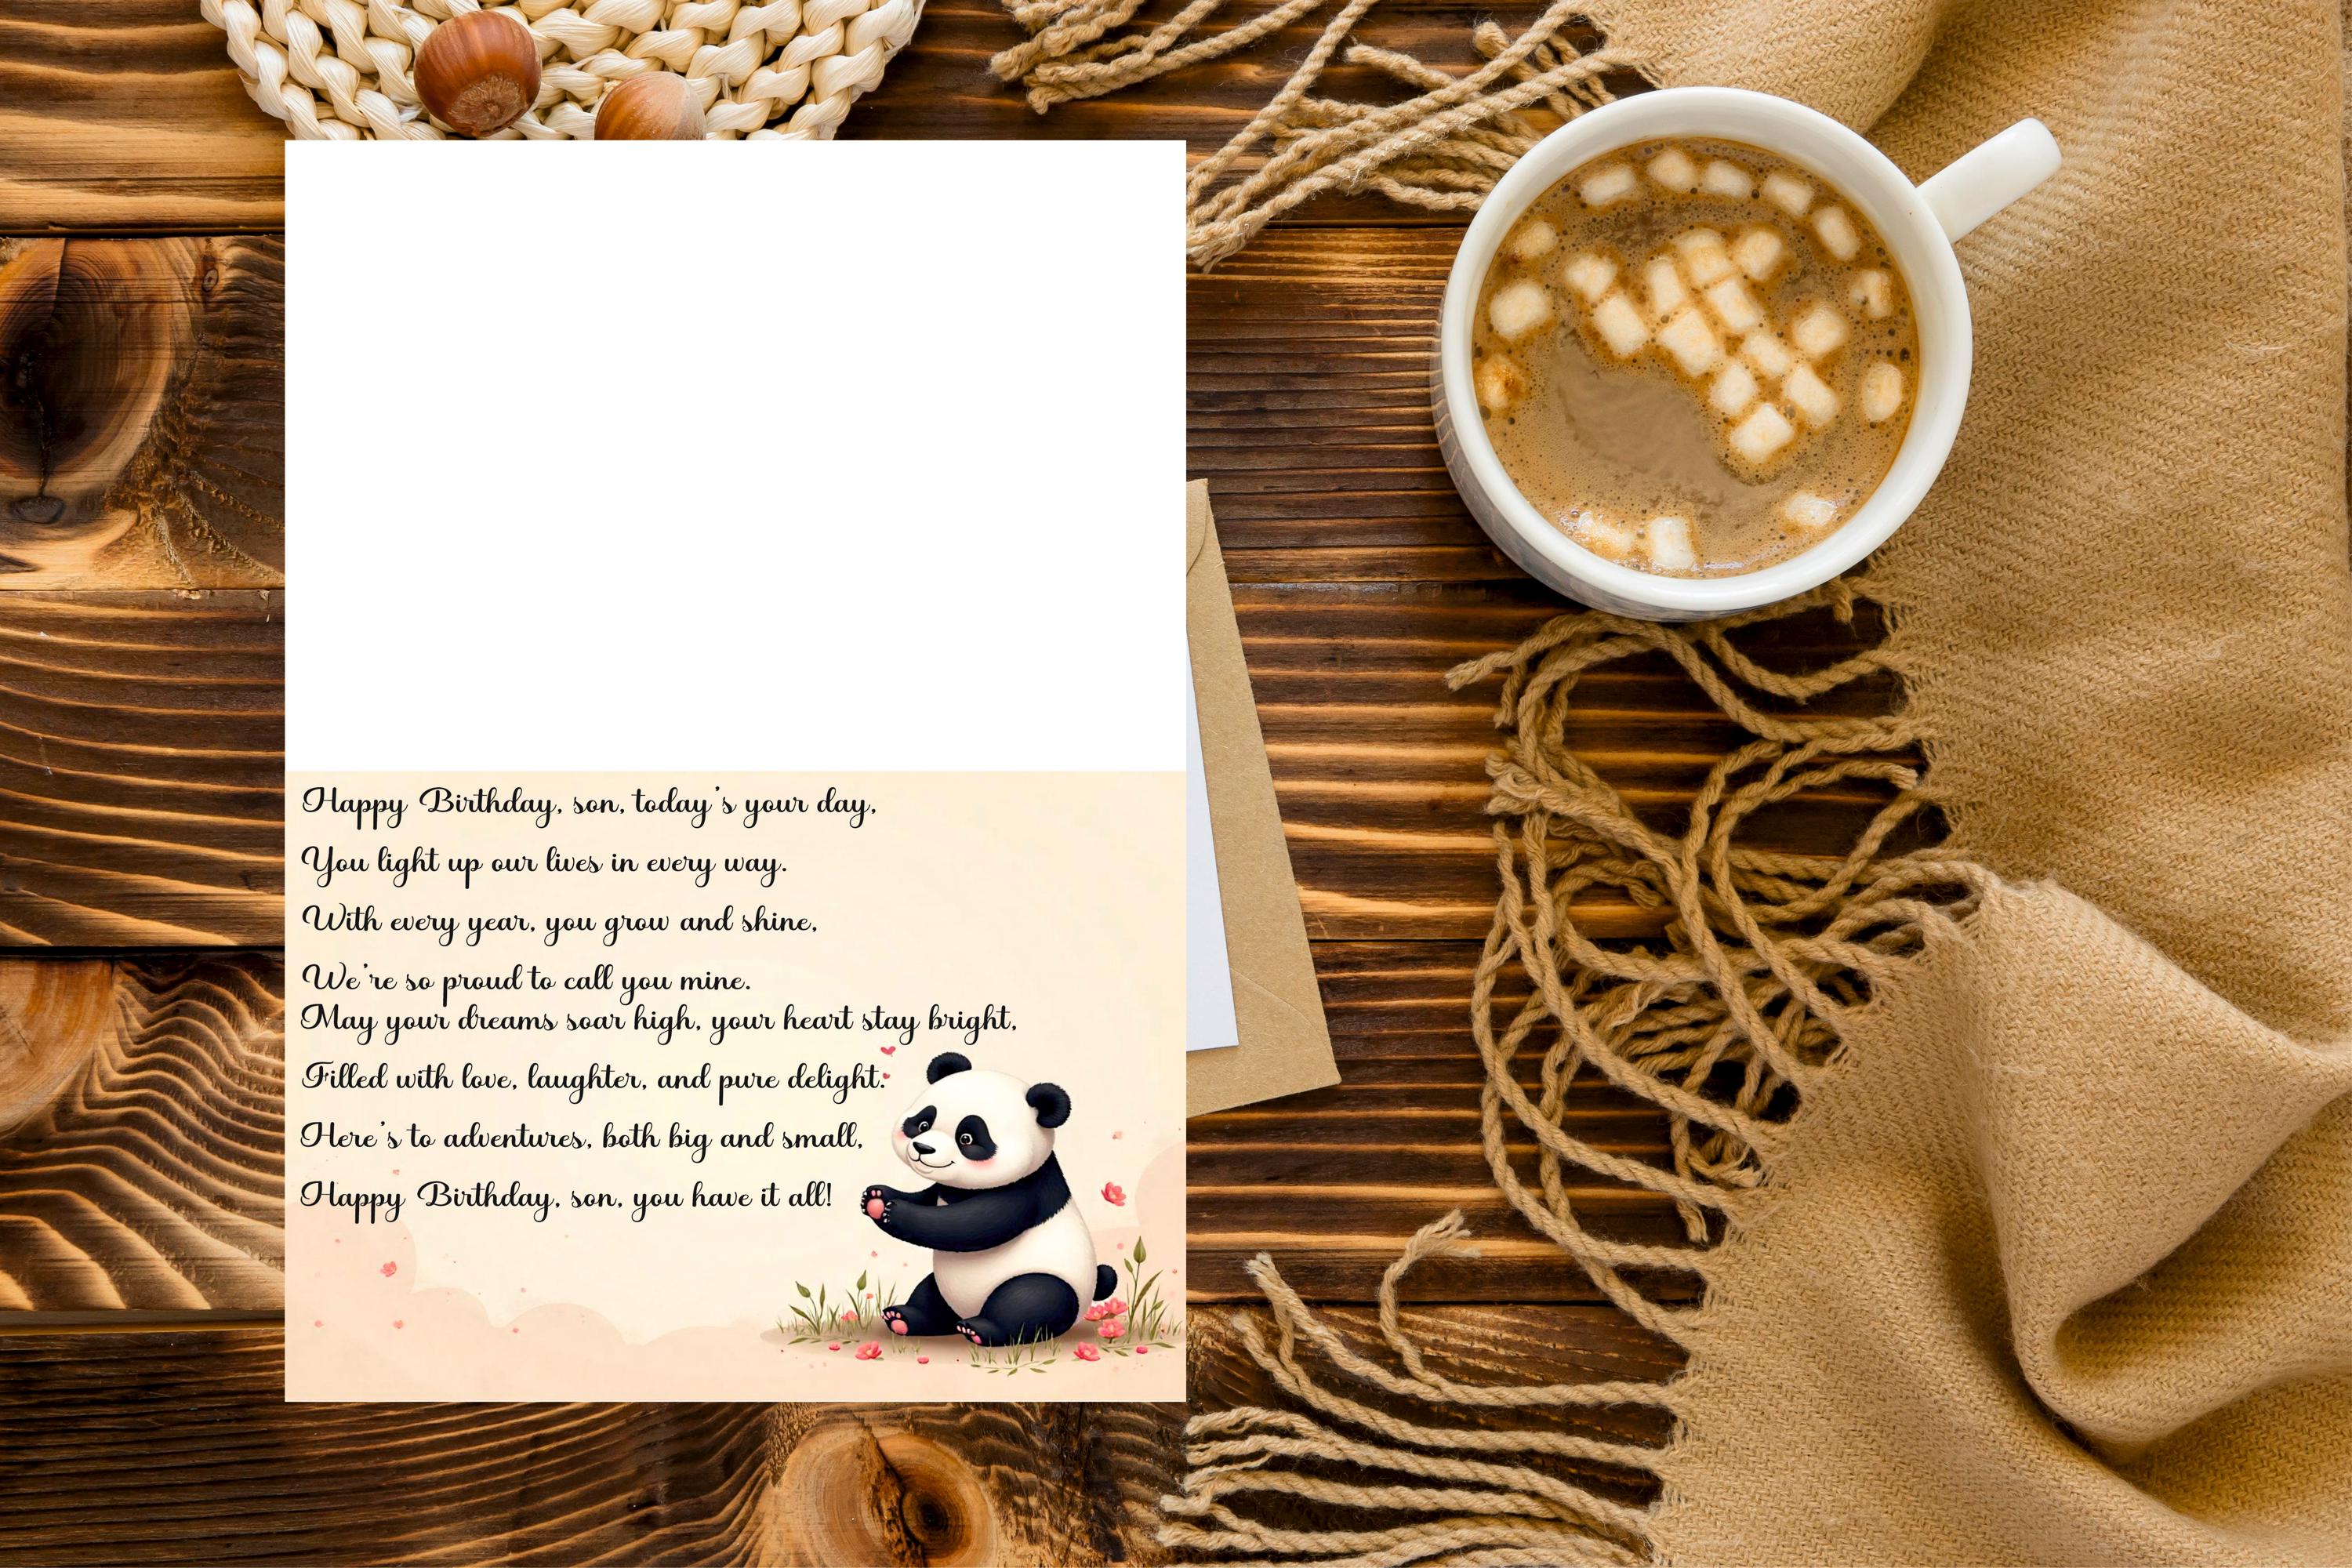 Happy Birthday, son, today's your day,
You light up our lives in every way.
With every year, you grow and shine,
We're so proud to call you mine.
May your dreams soar high, your heart stay bright,
Filled with love, laughter, and pure delight.
Here's to adventures, both big and small,
Happy Birthday, son, you have it all!